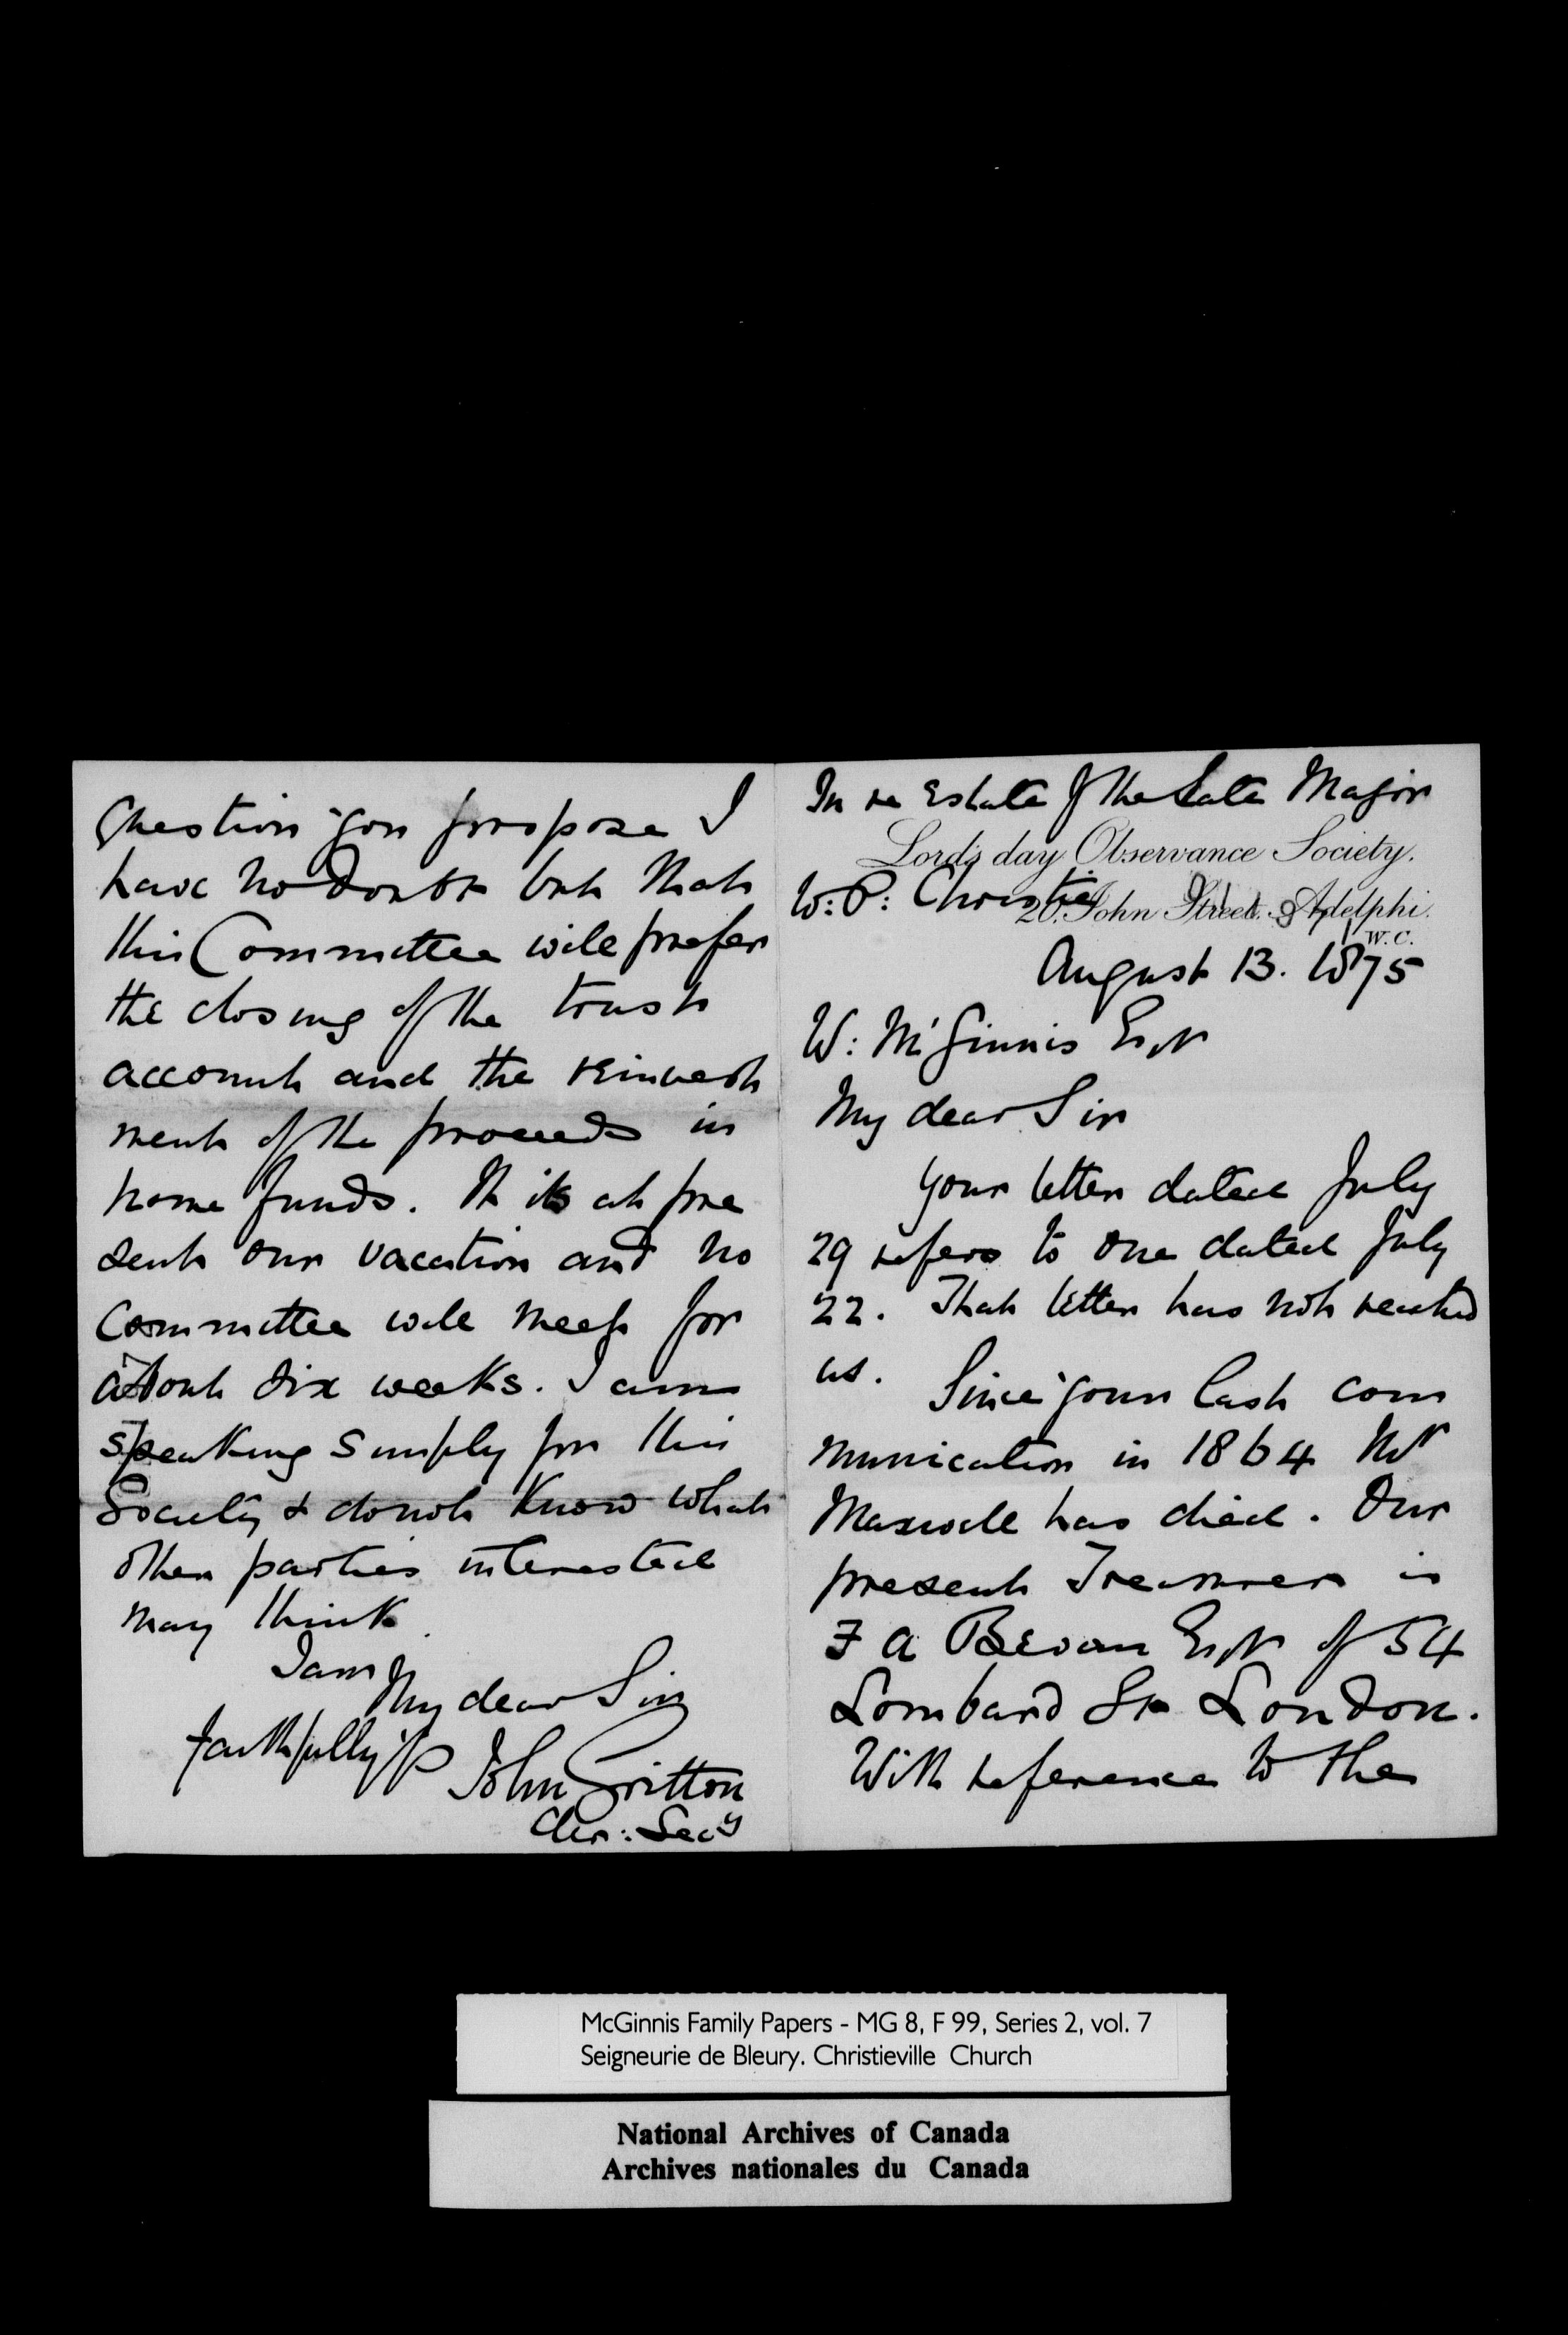 In re Estate of the Late Major
Lord's day Observance Society.
W: P: Christie
20, John Street, Adelphi.
W.C.
August 13. 1875
W: McGinnis Esqr
My dear Sir
Your letter dated July
29 refers to one dated July
22. That letter has not reached
us.
Since your last com
munication in 1864 Mr
Maxwell has died. Our
present Treasurer is
F A Bevan Esqr of 54
Lombard St London.
With reference to the
Question you propose I
have no doubt but that
this Committee will prefer
the closing of the trust
account and the reinvest
ment of the proceeds in
home funds. It is at pre
sent our vacation and no
Committee will meet for
about six weeks. I am
speaking simply for this
Society & do not know what
other parties interested
may think.
I am
My dear Sir
faithfully yrs
John Gritton
Cler: Secy
McGinnis Family Papers - MG 8, F 99, Series 2, vol. 7
Seigneurie de Bleury. Christieville Church
National Archives of Canada
Archives nationales du Canada